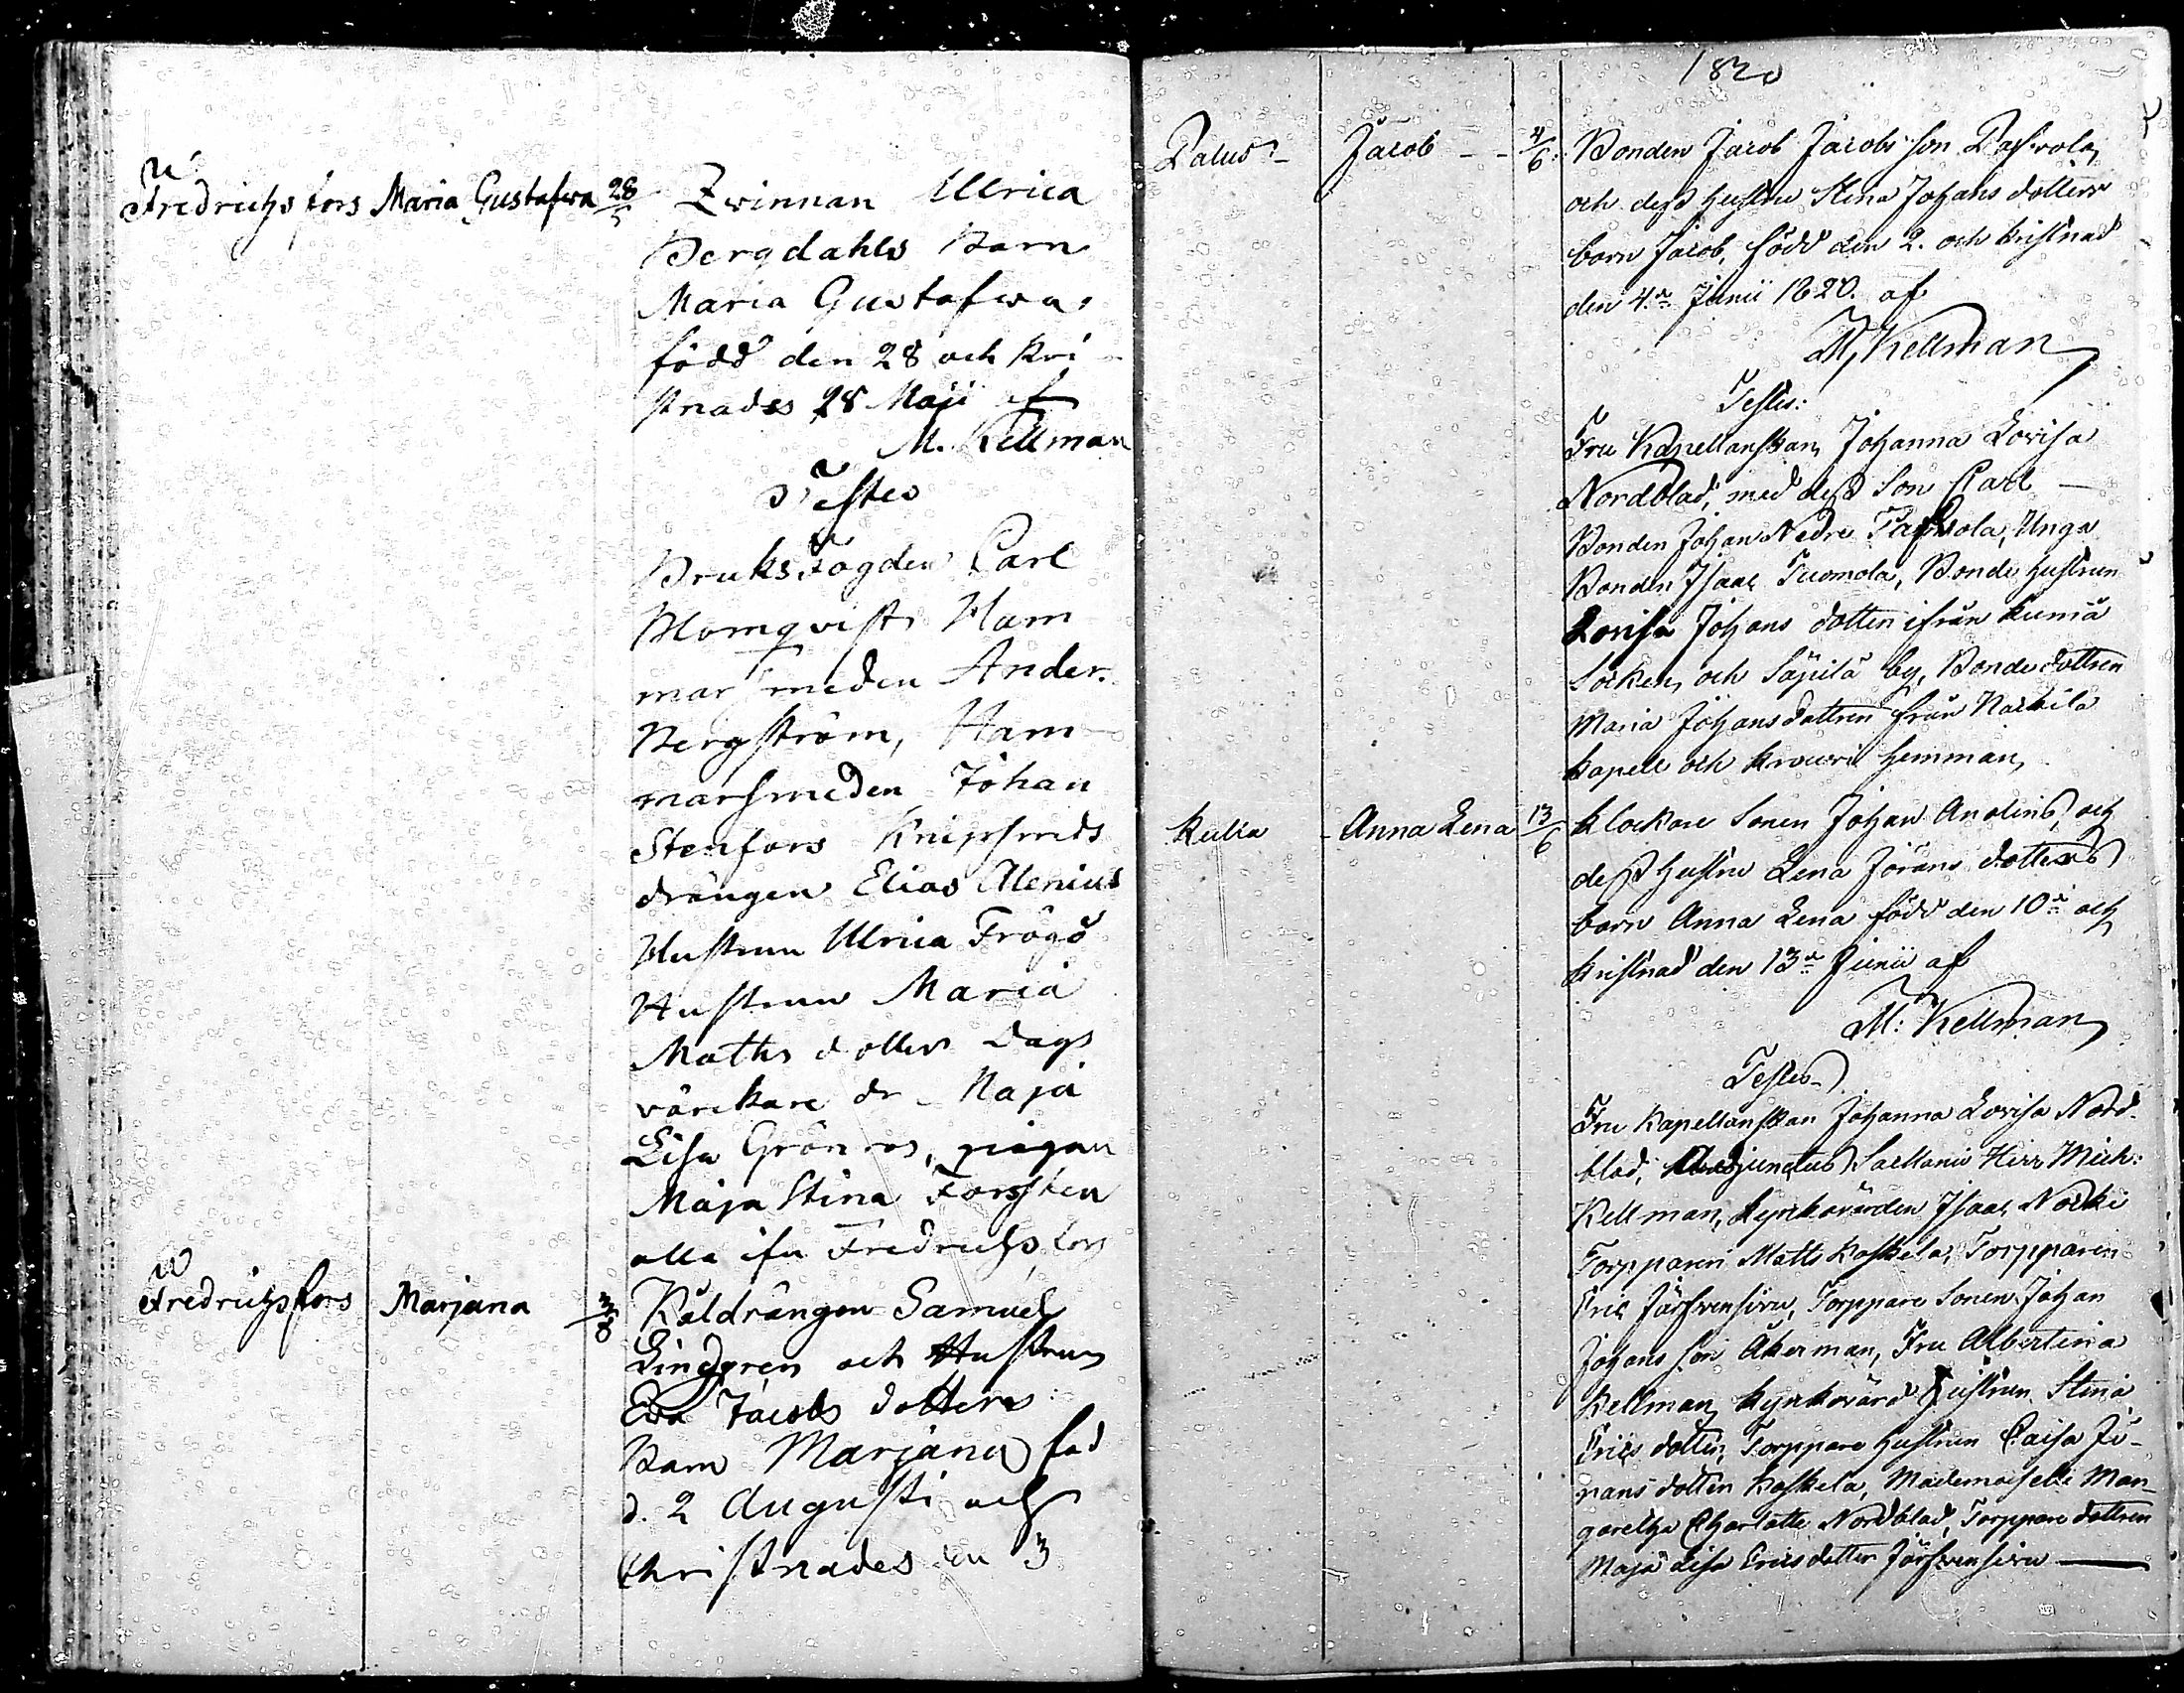 Fredrichs fors Maria Gustafwa 28/5 Qvinnan Ullrica
Bergdahls Barn
Maria Gustafwa,
född den 28 och Kri
stnades 28 Maji af
M. Kellman
Testes
Bruksfogden Carl
Blomqvist, Ham
marsmeden Ander.
Bergström, Ham
marsmeden Johan
Stenfors Knipsmeds
drängen Elias Alenius
Hustrun Ulrica Frögö
Hustrun Maria
Matts dotter Dags
värckare dr Maja
Lisa Grönros, pigan
Maja Stina Forssten
alla ifrn Fredrichs fors
Fredrichs fors Marjana 3/8 Koldrängen Samuel
Lindgren och Hustrun
Eva Jacobs dotters
Barn Marjana föd
d. 2 Augusti och
Christnades den 3
1820
Palus Jacob 4/6 Bonden Jacob Jacobs son Passvola
och dess hustru Stina Johans dotters
barn Jacob, född den 2. och kristnad
den 4de Junii 1820. af
M, Kellman
Testes:
Fru Kapellanskan Johanna Lovisa
Nordblad, med dess Son Carl
Bonden Johan Nedre Passvola, Unga
Bonden Isaac Tuomola, Bonde hustrun
Lovisa Johans dotter ifrån Kumå
Socken, och Säpilä by, Bondedottren
Maria Johansdottren från Nackila
Kapell och hemman,
Kulla Anna Lena 13/6 Klockare Sonen Johan Anolins, och
dess hustru Lena Jörans dotters
barn Anna Lena född den 10de och
kristnad den 13de Junii af
M: Kellman
Testes
Fru Kapellanskan Johanna Lovisa Nord-
blad, Adjunctus Sacellanie Herr Mich:
Kellman, Kyrkovärden Isaac Nocki
Torpparen Matts Koskela, Torpparen
Eric Järfvensivu, Torppare Sonen Johan
Johans son Åkerman, Fru Albertina
Kellman, Kyrkovärd hustrun Stina
Erics dotter, Torppare hustrun Caisa Jö-
rans dotter Koskela, Mademoiselle Mar-
garetha Charlotta Nordblad, Torppare dottren
Maja Lisa Ericsdotter Järfvensivu